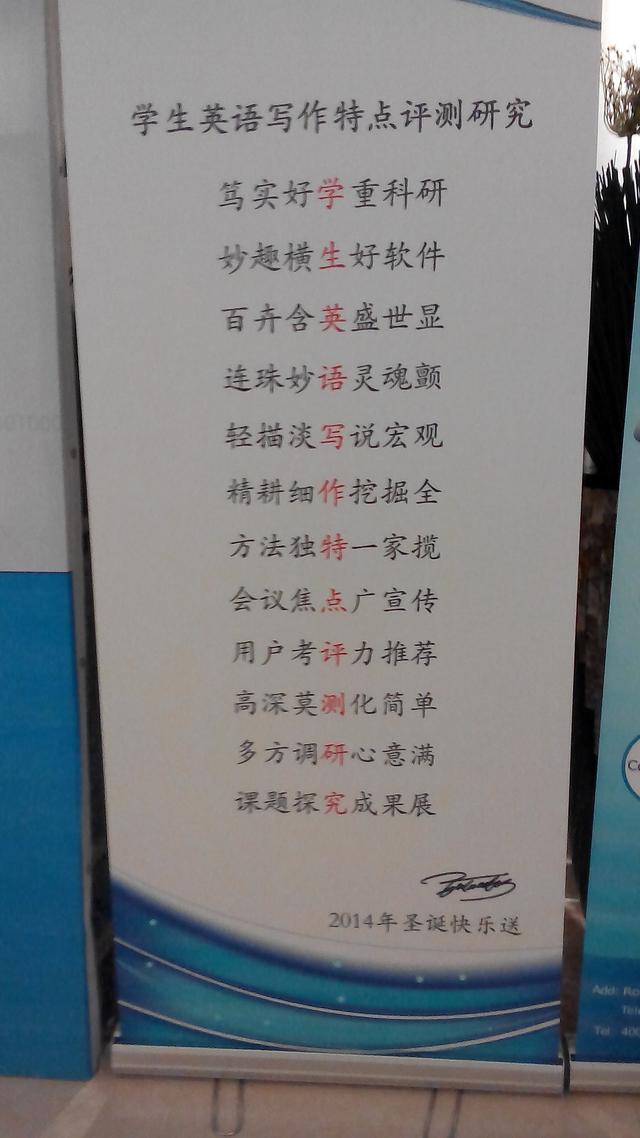 学生英语写作特点评测研究
笃实好学重科研
妙趣横生好软件
百卉含英盛世显
连珠妙语灵魂颤
轻描淡写说宏观
精耕细作挖掘全
方法独特一家揽
会议焦点广宣传
用户考评力推荐
高深莫测化简单
多方调研心意满
课题探究成果展
2014年圣诞快乐送
Add: Ro
Tele
Tel 400